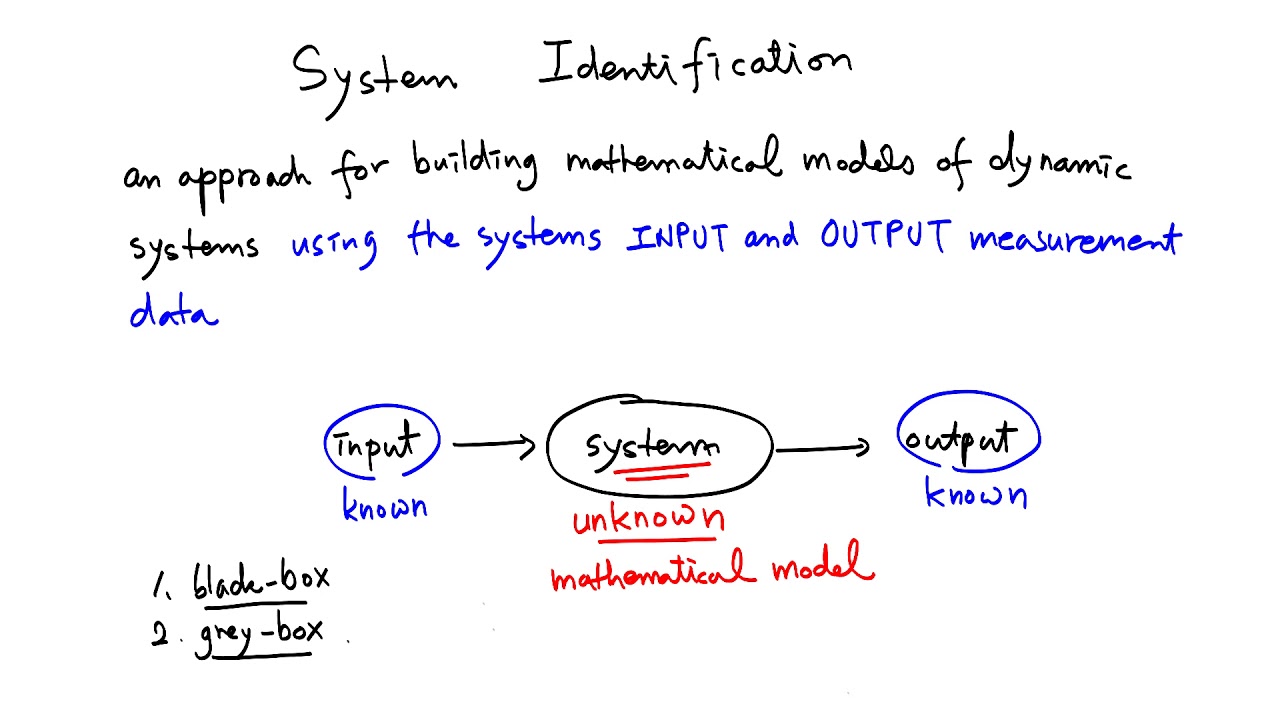 System Identification
an approach for building mathematical models of dynamic
systems using the systems INPUT and OUTPUT measurement
data
input → system → output
known unknown known
mathematical model
1. black-box
2. grey-box